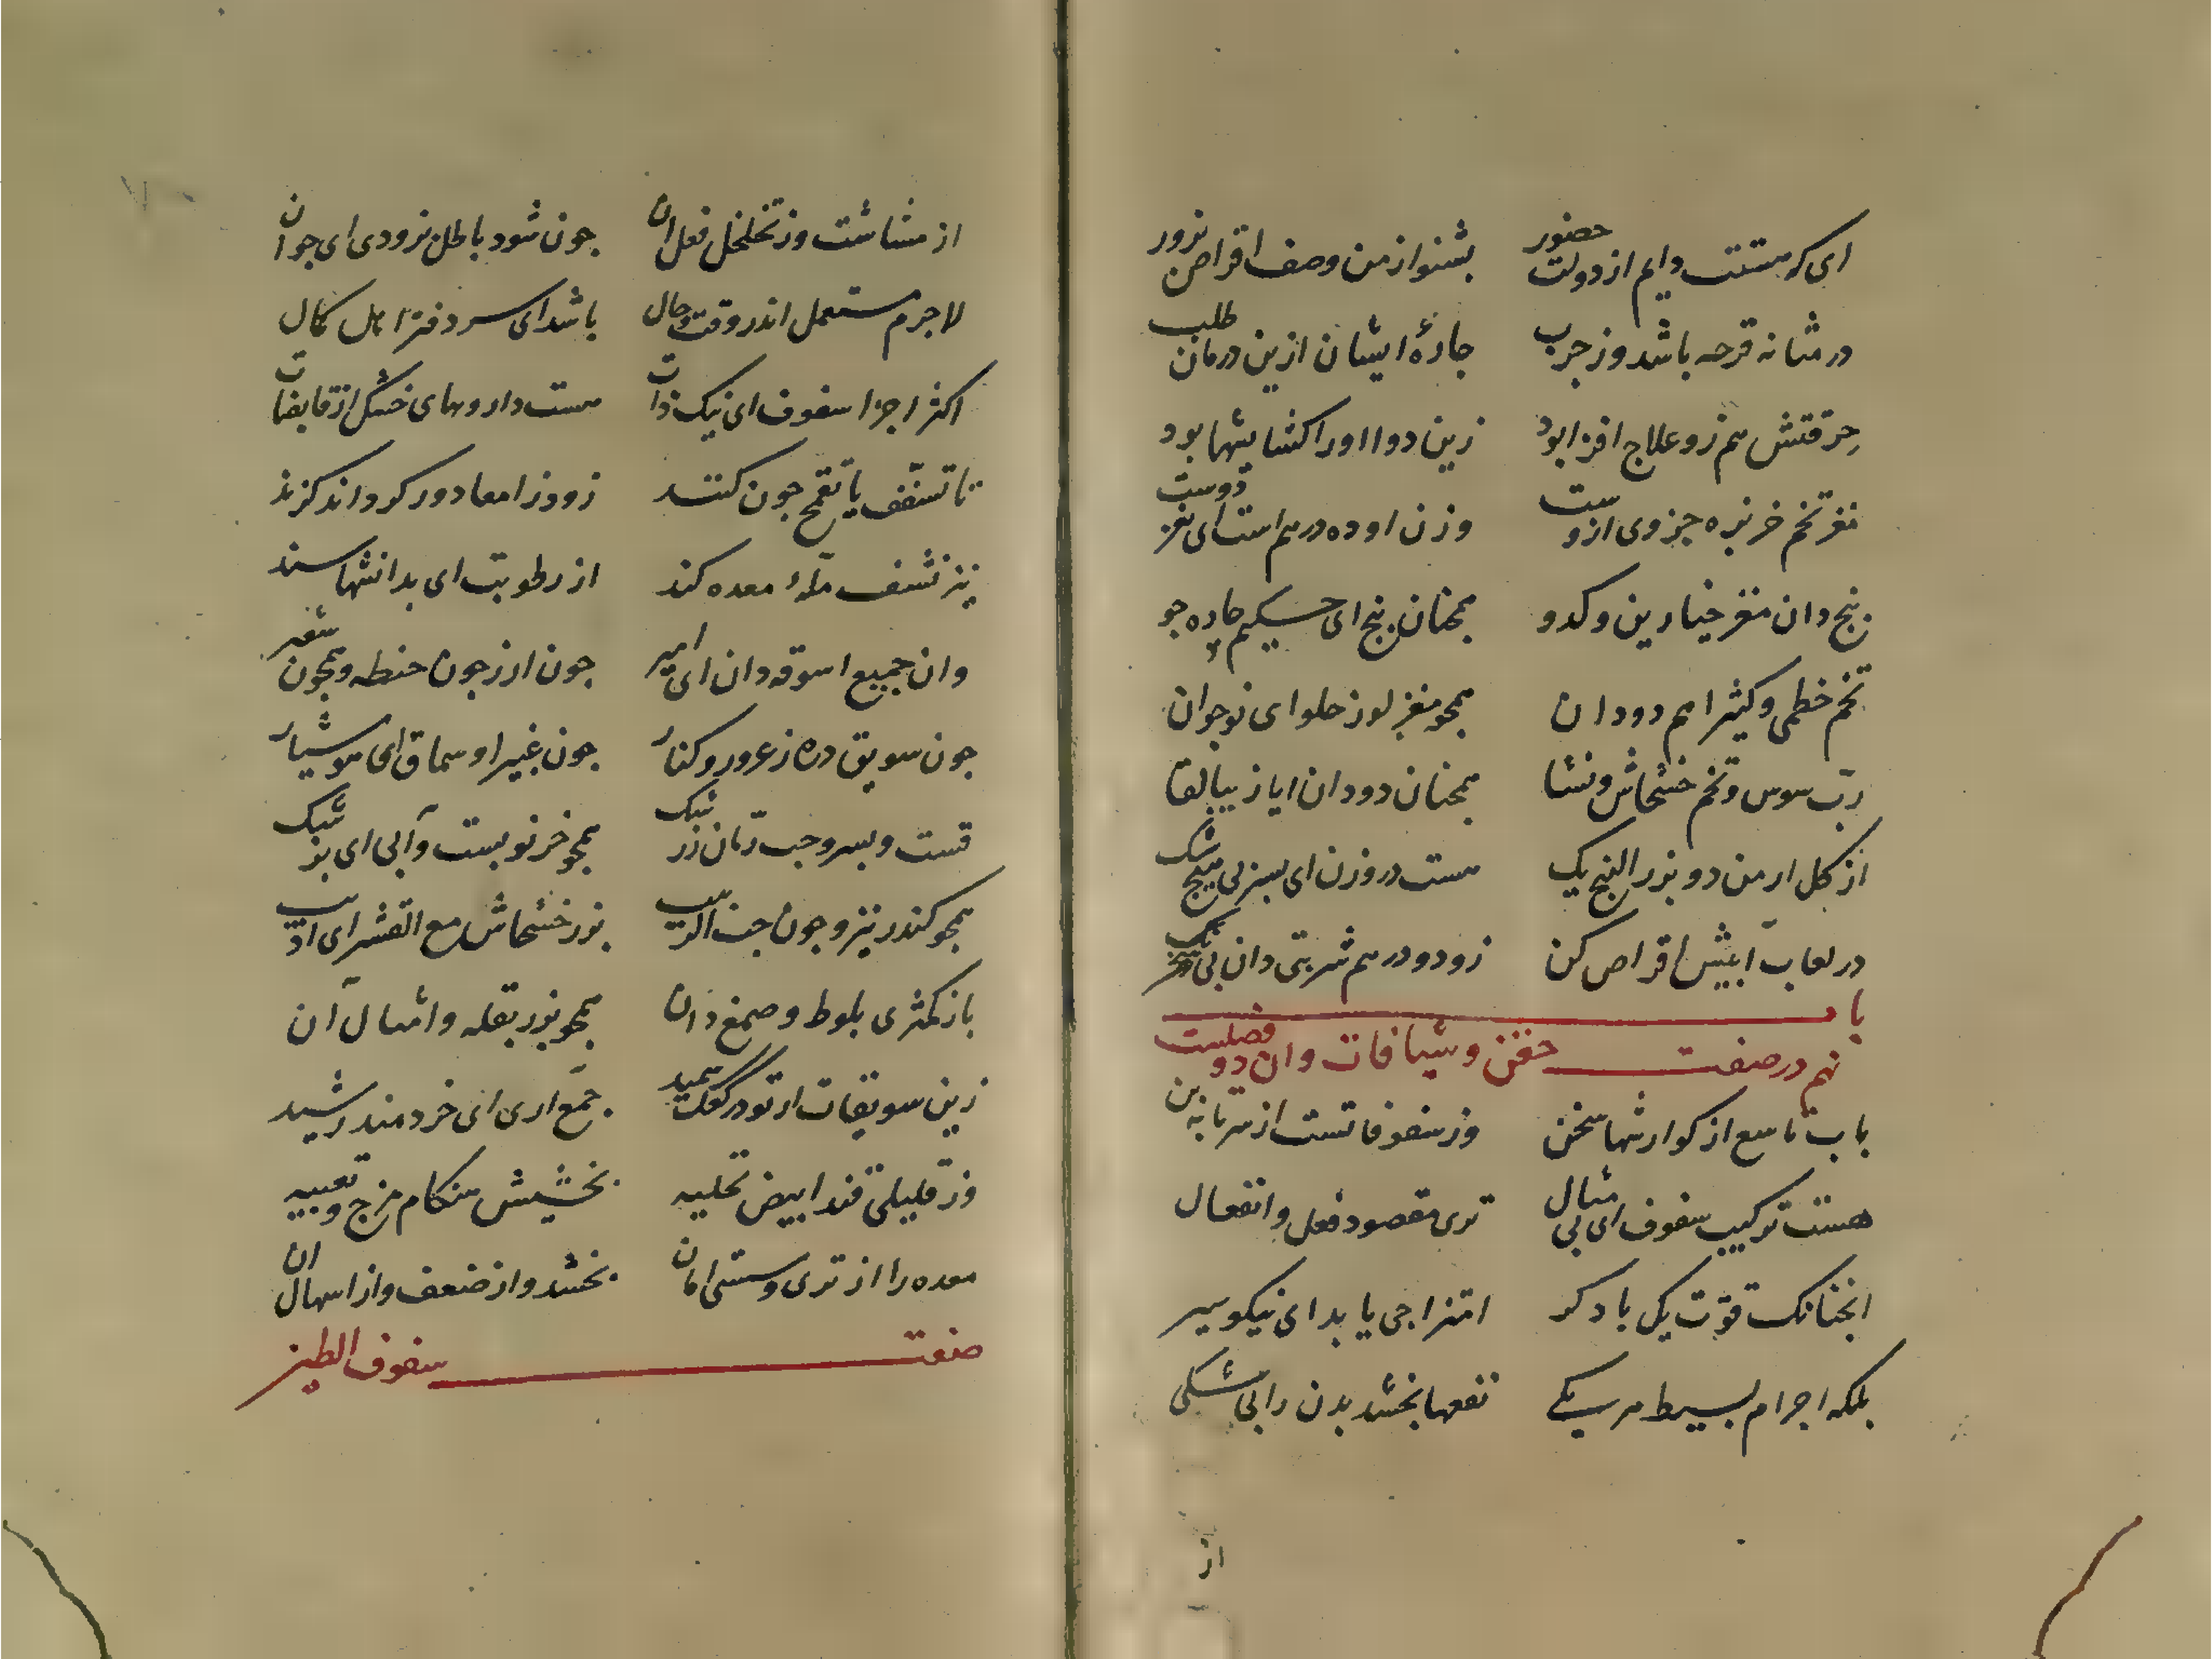 ای که هستت دایم از دولت حضور بشنو از من وصف اقراص بزور
در مثانه قرحه باشد وز جرب چارهٔ ایشان ازین درمان طلب
حرقتش هم زو علاج افزا بود زین دوا او را کشایشها بود
مغز تخم خربزه جزوی ازوست وزن او ده درهم است ای نغز دوست
پنج دان مغز خیارین و کدو همچنان پنج ای حکیم چاره جو
تخم خطمی و کثیرا هم دو دان همچو مغز لوز حلو ای نوجوان
رب سوس و تخم خشخاش و نشا همچنان دو دان ایا زیبا لقا
از کل ارمن دو بزر البنج یک هست در وزن ای پسر بی هیچ شک
در لعاب آبیش اقراص کن زو دو درهم شربتی دان بی
باب
نهم در صفت حقن و شیافات و ان دو فصلست
باب تاسع از کوارشها سخن وز سفوفاتست از سر تا به بن
هست ترکیب سفوف ای بی مثال نری مقصود فعل و انفعال
انچنانک قوت یک با دکر امتزاجی یابد ای نیکو سیر
بلکه اجرام بسیط هر یکی نفعها بخشد بدن را بی شکی
از
از هشاشت وز تخلخل فعل ان چون شود باطل بزودی ای جوان
لاجرم مستعمل اندر وقت و حال باشد ای سر دفتر اهل کمال
اکثر اجزا سفوف ای نیک ذات هست داروهای خشک از قابضات
تا تسفف یا تقمح چون کنند زود از امعا دور کرداند کزند
نیز نشف معده کند از رطوبت ای بدانشها سند
وان جمیع اسوقه دان ای امیر چون ارز چون حنطه و همچون شعیر
چون سویق دره زعرور و کنار چون غبیرا و سماق ای هوشیار
قست و بسر و حب رمان زرشک همچو خرنوبست و آبی ای بزشک
همچو کندر نیز و چون حب الزبیب بزر خشخاش مع القشر ای ادیب
باز کمثری بلوط و صمغ دان همچو بزر بقله و امثال آن
زین سویقات ار تو در کعک سمید جمع اری ای خردمند رشید
وز قلیلی قند ابیض تحلیه بخشیش هنکام مزج و تعبیه
معده را از تری و سستی امان بخشد و از ضعف و از اسهال ان
صفت سفوف الطین